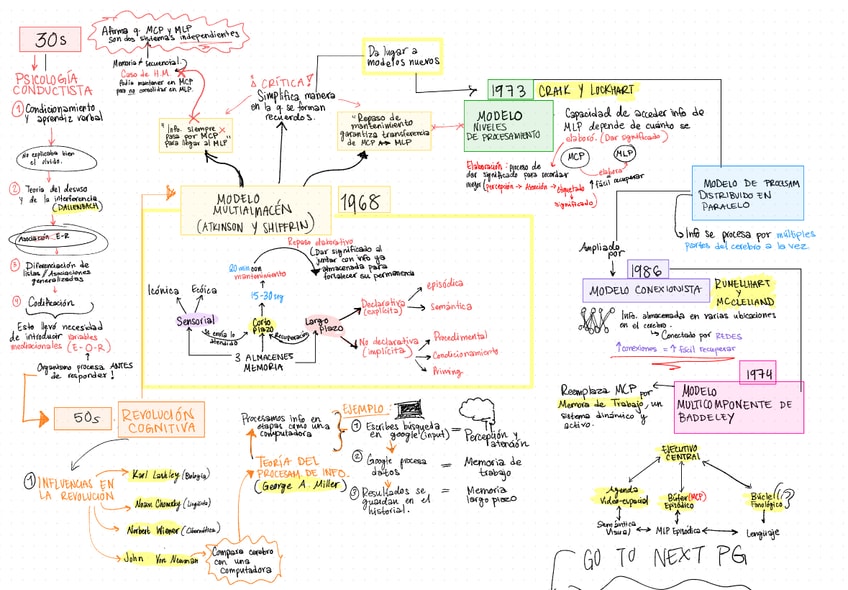 30s
PSICOLOGÍA
CONDUCTISTA
1 Condicionamiento
y aprendiz verbal
No explicaba bien
el olvido.
2 Teoría del desuso
y de la interferencia
(DALLENBACH)
Asociación E-R
3 Diferenciación de
listas / Asociaciones
generalizadas
4 Codificación
Esto llevó necesidad
de introducir variables
mediacionales (E-O-R)
Organismo procesa ANTES
de responder!
Afirma q. MCP y MLP
son dos sistemas independientes
Memoria ≠ secuencial.
Caso de H.M.
Podía mantener en MCP
pero no consolidar en MLP.
"Info. siempre
pasa por MCP"
para llegar al MLP
¡CRÍTICA!
Simplifica manera
en la q se forman
recuerdos.
"Repaso de
mantenimiento
garantiza transferencia
de MCP MLP
Da lugar a
modelos nuevos
MODELO
MULTIALMACÉN
(ATKINSON Y SHIFFRIN)
1968
Repaso elaborativo
(Dar significado al
juntar con info ya
almacenada para
fortalecer su permanencia
20 min con
mantenimiento
15-30 seg
Icónica
Ecóica
Sensorial
Se envía lo
atendido
Corto
plazo
Recuperación
Largo
plazo
3 ALMACENES
MEMORIA
Declarativa
(explícita)
episódica
Semántica
No declarativa
(implícita)
Procedimental
Condicionamiento
Priming
1973
CRAIK Y LOCKHART
MODELO
NIVELES
DE PROCESAMIENTO
Capacidad de acceder info de
MLP depende de cuánto se
elaboró. (Dar significado)
MCP
MLP
elabora
↑ fácil recuperar
Elaboración: proceso de
dar significado para recordar
mejor (percepción → Atención → etiquetado
→ significado)
MODELO DE PROCESAM
DISTRIBUIDO EN
PARALELO
Info se procesa por múltiples
partes del cerebro a la vez.
Ampliado
por
1986
MODELO CONEXIONISTA
RUMELLHART
Y
MCCLELLAND
Info. almacenada en varias ubicaciones
en el cerebro.
Conectado por REDES
↑conexiones = ↑ fácil recuperar
1974
MODELO
MULTICOMPONENTE DE
BADDELEY
Reemplaza MCP por
Memoria de Trabajo, un
sistema dinámico y
activo.
EJECUTIVO
CENTRAL
Agenda
Video-espacial
Búfer (MCP)
Episódico
Bucle
Fonológico
Semántica
Visual
MLP Episódica
Lenguaje
GO TO NEXT PG
50s
REVOLUCIÓN
COGNITIVA
1 INFLUENCIAS EN
LA REVOLUCIÓN
Karl Lashley (Biología)
Noam Chomsky (Lingüista)
Norbert Wiener (Cibernética)
John Von Neuman
Compara cerebro
con una
computadora
Procesamos info en
etapas como una
computadora
TEORÍA DEL
PROCESAM. DE INFO.
(George A. Miller)
EJEMPLO:
1 Escribes búsqueda
en google (input) = Percepción y
atención
2 Google procesa
datos = Memoria de
trabajo
3 Resultados se
guardan en el
historial. = Memoria
largo plazo